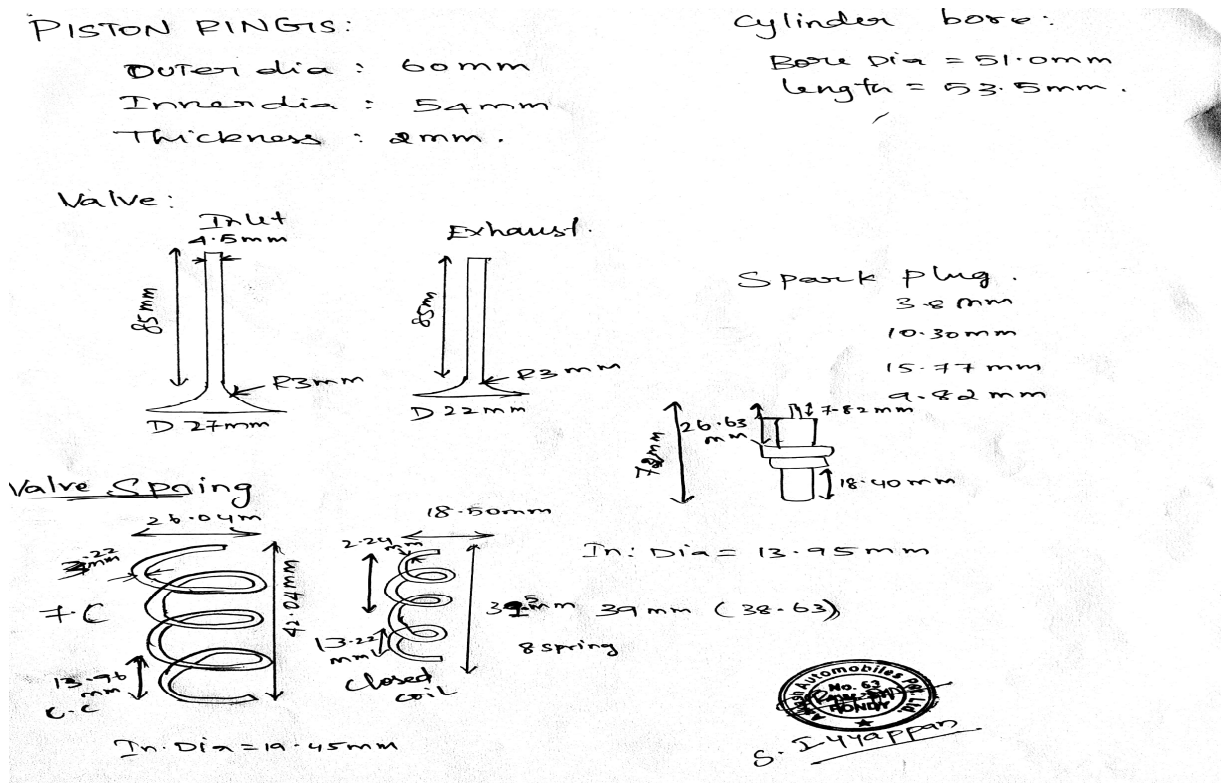 PISTON RINGS:
Outer dia : 60mm
Inner dia : 54mm
Thickness : 2mm.
Cylinder bore:
Bore Dia = 51.0mm
length = 53.5mm.
Valve:
Inlet
4.5mm
85mm
R3mm
D 27mm
Exhaust.
85mm
R3mm
D 22mm
Spark plug.
3.8 mm
10.30mm
15.77 mm
9.82 mm
7.82mm
26.63
mm
78mm
18.40mm
Valve Spring
26.04m
.22
mm
7.C
42.04mm
13.96
mm
C.C
In. Dia = 19.45mm
18.50mm
2.24
mm
13.22
mm
closed
coil
In: Dia = 13.95mm
39 mm (38.63)
8 spring
Automobiles Pvt. Ltd.
No. 63
HONDA
S. Iyyappan